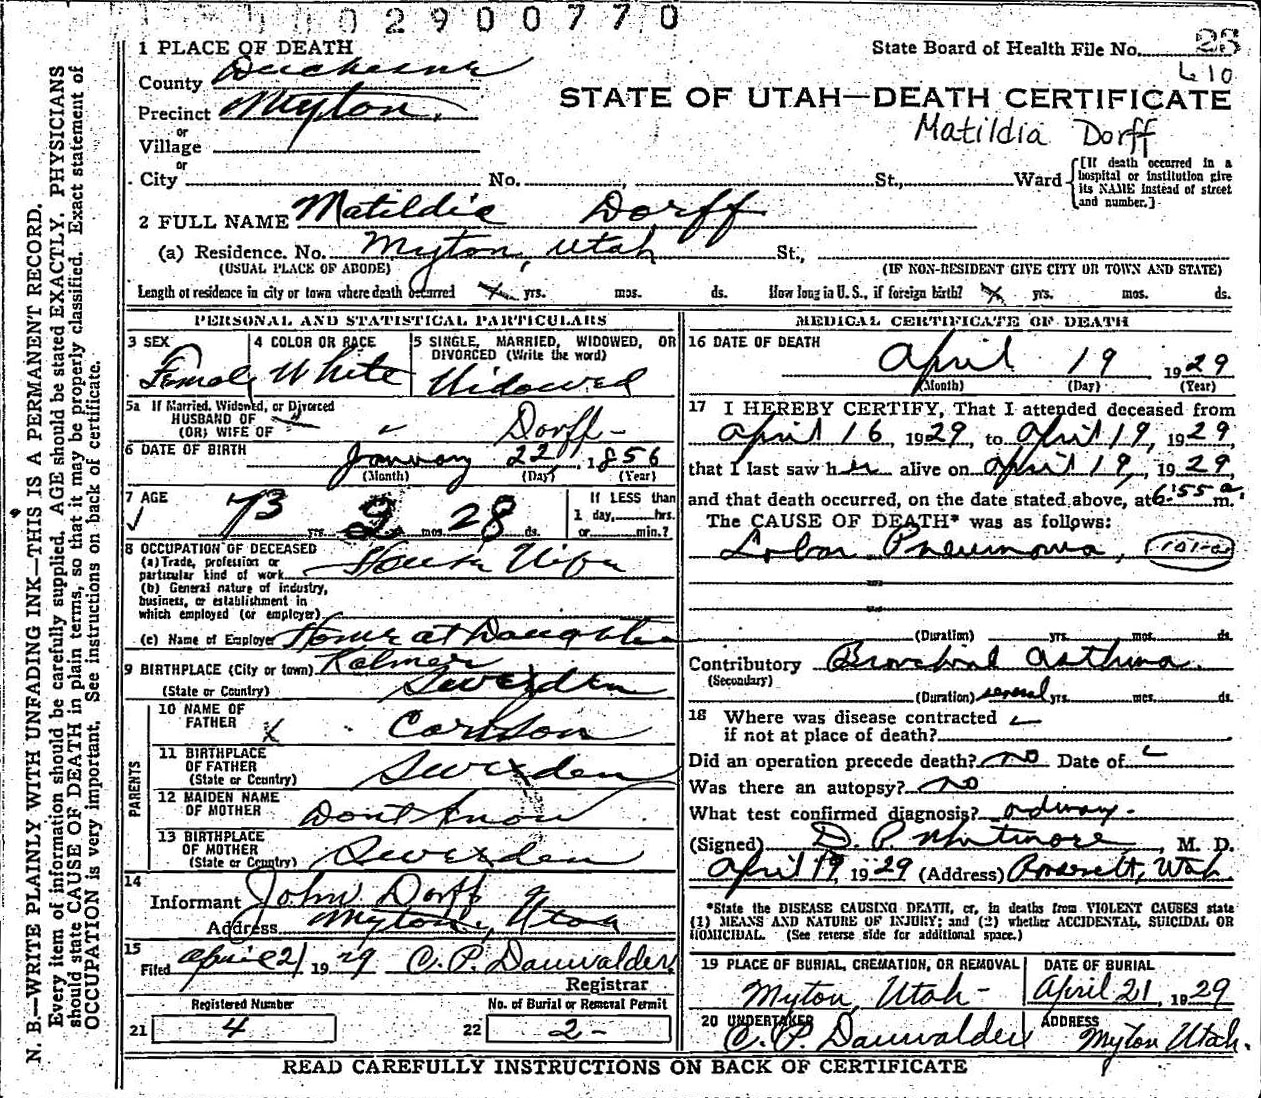 02900770
1 PLACE OF DEATH
State Board of Health File No. 23
610
County Duchesne
STATE OF UTAH—DEATH CERTIFICATE
Precinct Myton.
Matildia Dorff
or
Village
or
City No. St., Ward [If death occurred in a hospital or institution give its NAME instead of street and number.]
2 FULL NAME Matildia Dorff
(a) Residence. No. Myton, Utah St.,
(USUAL PLACE OF ABODE) (IF NON-RESIDENT GIVE CITY OR TOWN AND STATE)
Length of residence in city or town where death occurred yrs. mos. ds. How long in U.S., if foreign birth? yrs. mos. ds.
PERSONAL AND STATISTICAL PARTICULARS
3 SEX 4 COLOR OR RACE 5 SINGLE, MARRIED, WIDOWED, OR
DIVORCED (Write the word)
Female White Widowed
5a If Married, Widowed, or Divorced
HUSBAND OF
(OR) WIFE OF Dorff-
6 DATE OF BIRTH
January 22, 1856
(Month) (Day) (Year)
7 AGE If LESS than
73 yrs. 2 mos. 28 ds. 1 day, hrs.
or min.?
8 OCCUPATION OF DECEASED
(a) Trade, profession or
particular kind of work House Wife
(b) General nature of industry,
business, or establishment in
which employed (or employer)
(c) Name of Employer Home at Daughter
9 BIRTHPLACE (City or town) Kalmer
(State or Country) Sweden
PARENTS
10 NAME OF
FATHER Carlson
11 BIRTHPLACE
OF FATHER
(State or Country) Sweden
12 MAIDEN NAME
OF MOTHER Dont Know
13 BIRTHPLACE
OF MOTHER
(State or Country) Sweden
14
Informant John Dorff
Address Myton, Utah
15
Filed April 21 1929 C. P. Dauwalder
Registrar
Registered Number No. of Burial or Removal Permit
21 4 22 2-
MEDICAL CERTIFICATE OF DEATH
16 DATE OF DEATH
April 19 1929
(Month) (Day) (Year)
17 I HEREBY CERTIFY, That I attended deceased from
April 16, 1929, to April 19, 1929,
that I last saw her alive on April 19, 1929,
and that death occurred, on the date stated above, at 6:55 a. m.
The CAUSE OF DEATH* was as follows:
Lobar Pneumonia,
(Duration) yrs. mos. ds.
Contributory Bronchial asthma.
(Secondary)
(Duration) several yrs. mos. ds.
18 Where was disease contracted
if not at place of death?
Did an operation precede death? no Date of
Was there an autopsy? no
What test confirmed diagnosis?
(Signed) D. P. Whitmore, M. D.
April 19, 1929 (Address) Roosevelt, Utah.
*State the DISEASE CAUSING DEATH, or, in deaths from VIOLENT CAUSES state
(1) MEANS AND NATURE OF INJURY; and (2) whether ACCIDENTAL, SUICIDAL OR
HOMICIDAL. (See reverse side for additional space.)
19 PLACE OF BURIAL, CREMATION, OR REMOVAL DATE OF BURIAL
Myton, Utah- April 21, 1929
20 UNDERTAKER ADDRESS
C. P. Dauwalder Myton Utah.
READ CAREFULLY INSTRUCTIONS ON BACK OF CERTIFICATE
N. B.—WRITE PLAINLY WITH UNFADING INK—THIS IS A PERMANENT RECORD.
Every item of information should be carefully supplied. AGE should be stated EXACTLY. PHYSICIANS
should state CAUSE OF DEATH in plain terms, so that it may be properly classified. Exact statement of
OCCUPATION is very important. See instructions on back of certificate.